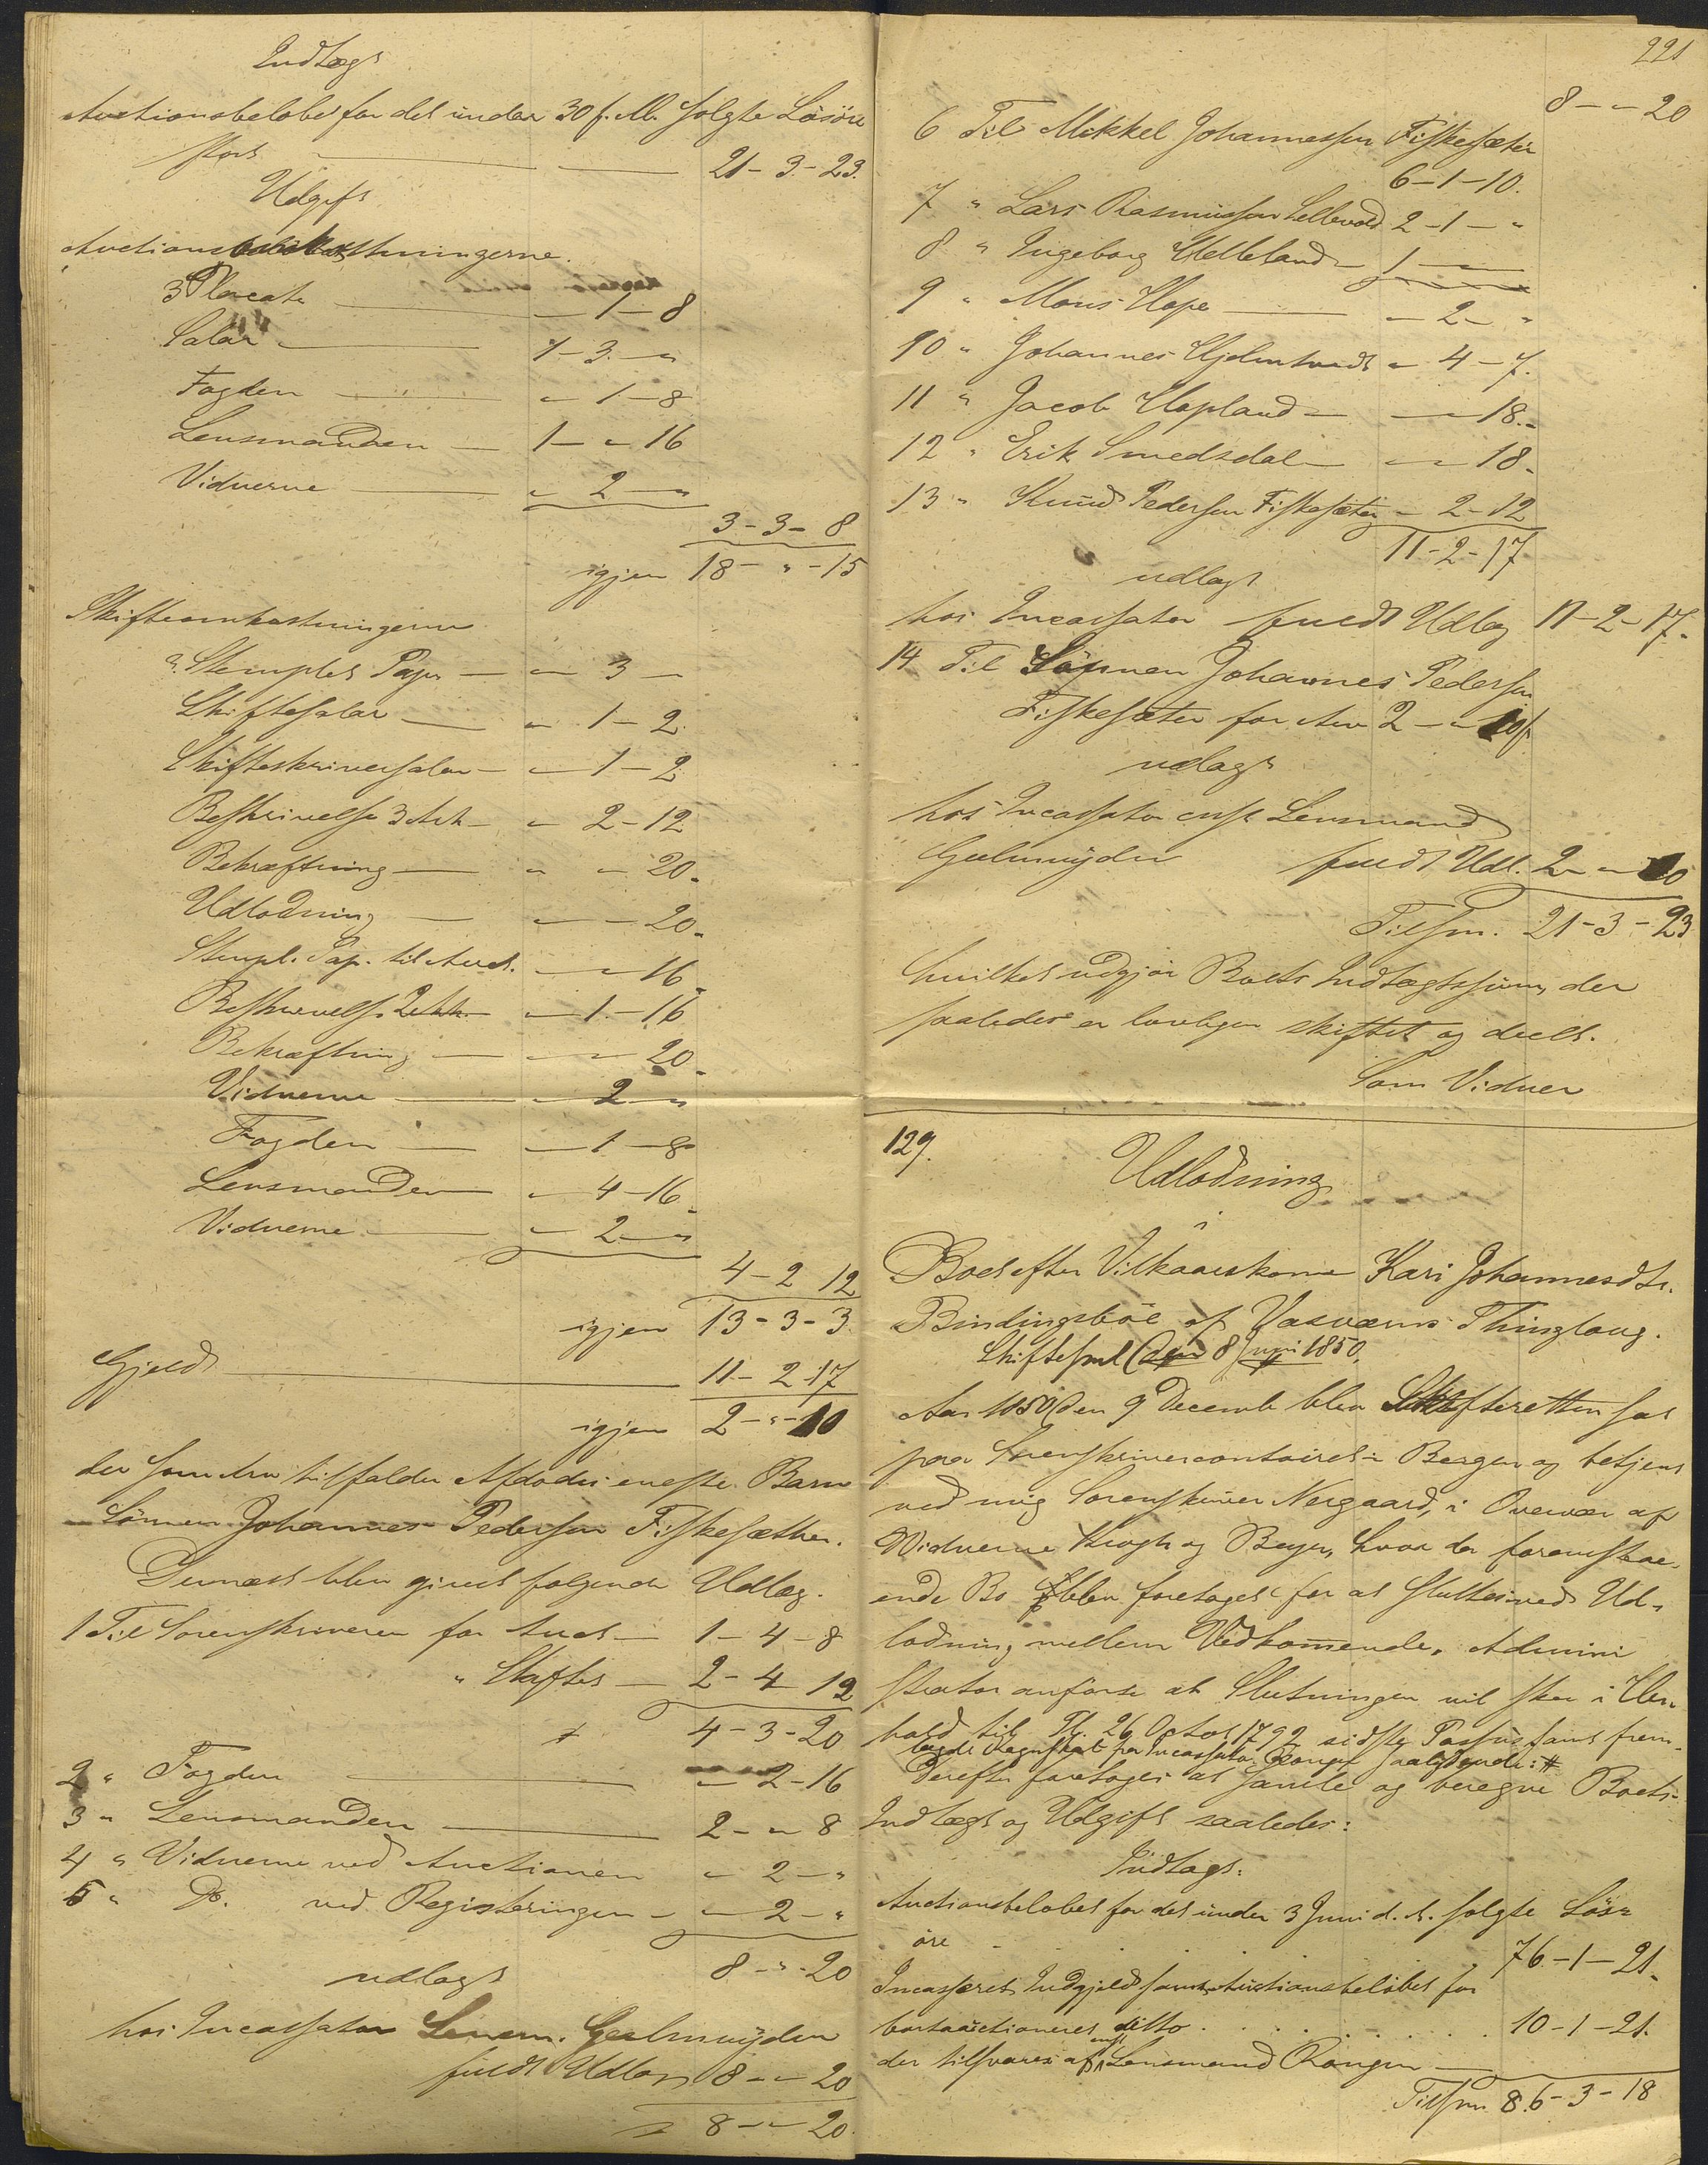 Indtægt
Auctionsbeløbet for det under 30 f. M. solgte Løsøre
stort 21-3-23.
Udgift
Auctionsomkostningerne.
3 Placate - 1 - 8
Salær 1 - 3 - "
Fogden " - 1 - 8
Lensmanden 1 - " 16
Vidnerne " 2 - "
3 - 3 - 8
igjen 18 - " - 15
Skifteomkostningerne
Stemplet Papir " 3 -
Skiftesalær " 1 - 2
Skifteskriversalær " 1 - 2
Beskrivelse 3 Ark " 2 - 12
Bekræftning " " 20
Udlodning " - 20
Stempl. Pap. til Auct. - " 16
Beskrivelse 2 Ark " 1 - 16
Bekræftning - " 20
Vidnerne " 2 "
Fogden - 1 - 8
Lensmanden " 4 - 16
Vidnerne " 2 - "
4 - 2 12
igjen 13 - 3 - 3
Gjeld 11 - 2 - 17
igjen 2 - " - 10
der som Arv tilfalder Afdødes eneste Barn
Sønnen Johannes Pedersen Fiskesæther.
Dernæst blev gjort følgende Udlæg.
1 Til Sorenskriveren for Auct. 1 - 4 - 8
" Skiftet 2 - 4 12
4 - 3 - 20
2 " Fogden " 2 - 16
3 " Lensmanden 2 - " 8
4 " Vidnerne ved Auctionen " 2 - "
5 " Do. ved Registeringen - " 2 - "
8 - " - 20
udlagt
hos Incassator Lensm. Geelmuyden
fuldt Udlæg 8 - " 20
8 - " 20.
221
8 - " 20
6 Til Mikkel Johannessen Fiskesæter
6 - 1 - 10.
7 " Lars Rasmussen Sellevold 2 - 1 - "
8 " Ingeborg Helleland - 1 -
9 " Mons Hope - 2 - "
10 " Johannes Hjelmtvedt " 4 - 7.
11 " Jacob Hopland - " 18.
12 " Erik Smedsdal - " 18.
13 " Knud Pedersen Fiskesæter - 2 - 12
11 - 2 - 17
udlagt
hos Incassator fuldt Udlæg 11 - 2 - 17.
14 Til Sønnen Johannes Pedersen
Fiskesæter for Arv 2 - " 10 s
udlagt
hos Incassator const Lensmand
Geelmuyden fuldt Udl. 2 - " 10
Tilsm. 21 - 3 - 23
hvilket udgjør Boets Indtægtssum, der
saaledes er lovligen skiftet og deelt.
Som Vidner
129.
Udlodning
i
Boet efter Vilkaarskone Kari Johannesdtr.
Bindingsbøe af Thinglaug.
Skiftesml (den 8 Juni 1850.
Aar 1850 den 9 Decemb blev Skifteretten sat
paa Sorenskrivercontoiret i Bergen og betjent
ved mig Sorenskriver Nergaard, i Overvær af
Vidnerne Krogh og Beyer, hvor da foranstaa-
ende Bo blev foretaget for at sluttes ved Ud-
lodning mellem Vedkommende. Admini
strator anførte at Slutningen vil skee i Hen-
hold til Pl. 26 Octob 1792 sidste Passus samt frem-
lagde Regnskab fra Incassator Rongen saalydende: #
Derefter foretoges at samle og beregne Boets
Indtægt og Udgift saaledes:
Indtægt:
Auctionsbeløbet for det under 3 Juni d. A. solgte Løs-
øre 76 - 1 - 21.
Incasseret Indgjeld samt Auctionsbeløbet for
bortauctioneret ditto 10 - 1 - 21.
der tilsvares af const Lensmand Rongen
Tilsm. 86 - 3 - 18